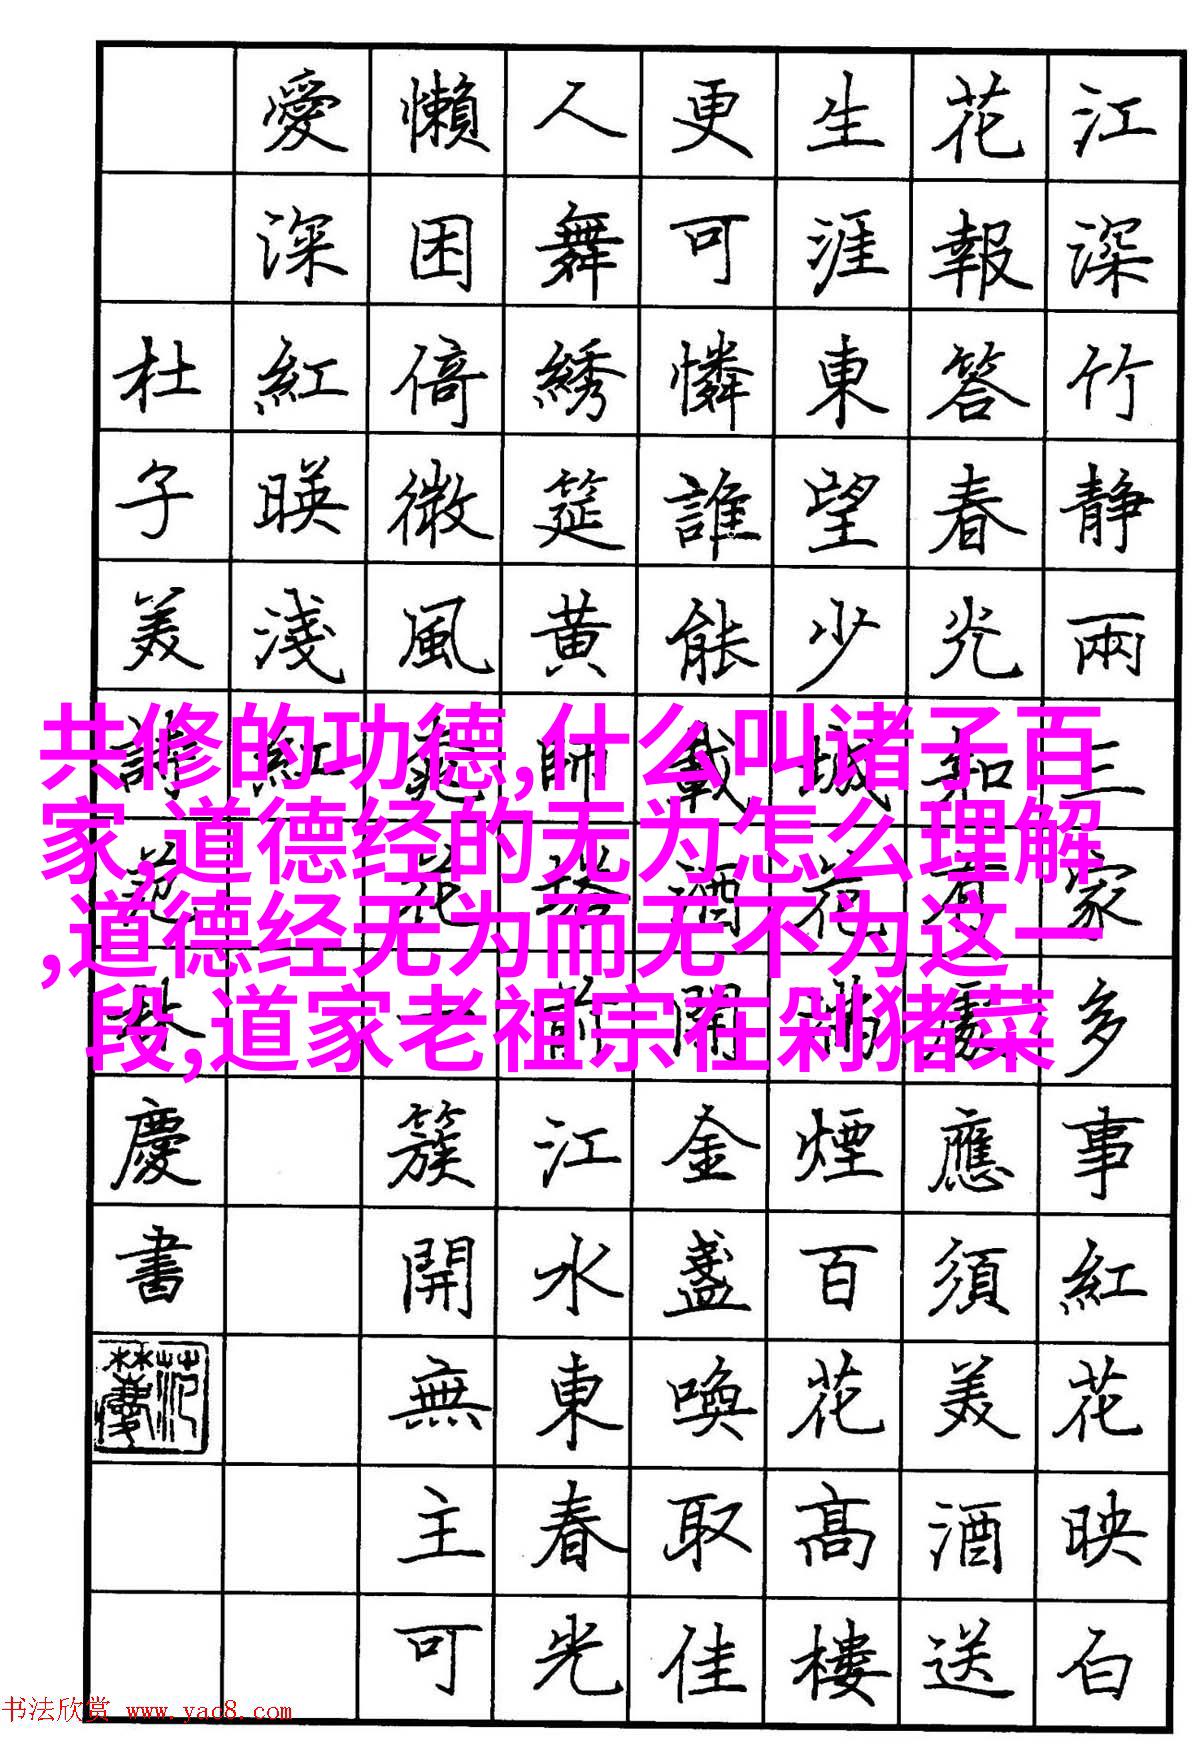 江深竹静兩三家多事紅花映白
花報答春光知有處應須美酒送
生涯東望少城花滿煙百花高樓
更可憐誰能載酒開金盞喚取佳
人舞綉筵黄師塔前江水東春光
懶困倚微風桃花一簇開無主可
愛深紅暎淺紅
杜子美詩范林慶書
共修的功德,什么叫诸子百
家,道德经的无为怎么理解
,道德经无为而无不为这一
段,道家老祖宗在剁猪菜
书法欣赏 www.yac8.com